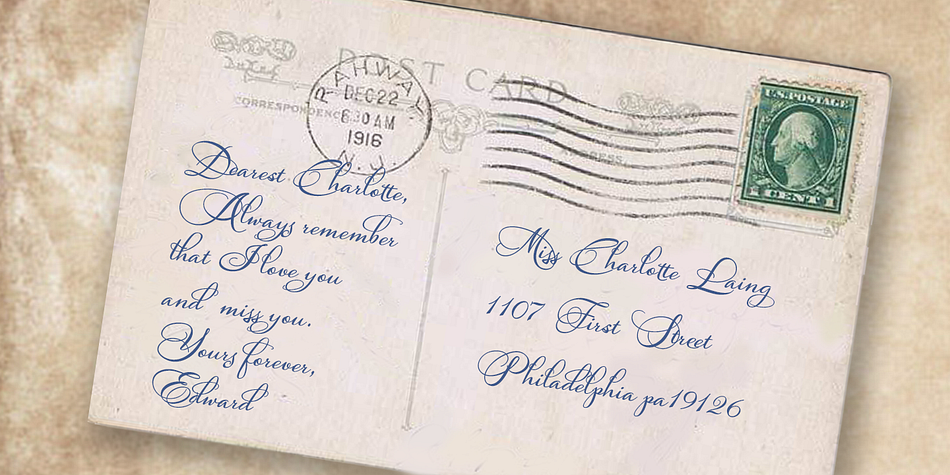 POST CARD
CORRESPONDENCE
RAHWAY
DEC 22
6.30 AM
1916
N.J.
U.S. POSTAGE
1 CENT 1
Dearest Charlotte,
Always remember
that I love you
and miss you.
Yours forever,
Edward
Miss Charlotte Laing
1107 First Street
Philadelphia pa19126